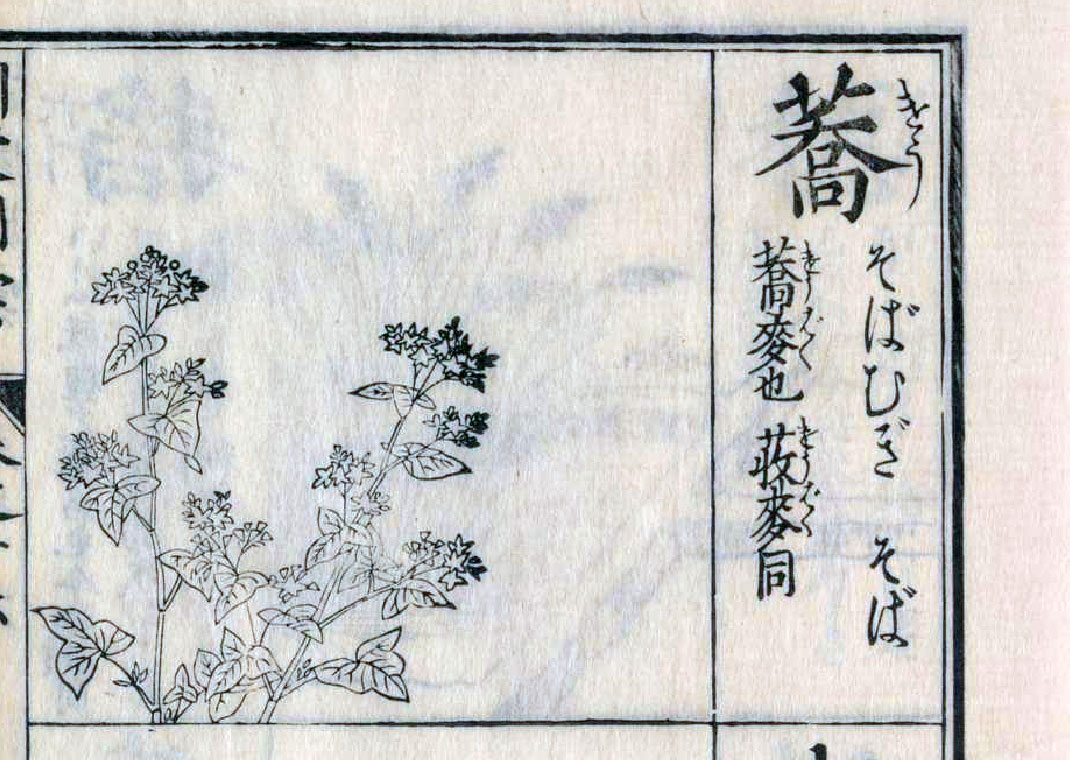 蕎
きう
そばむぎ そば
蕎麥也 荍麥同
きうばく きうばく